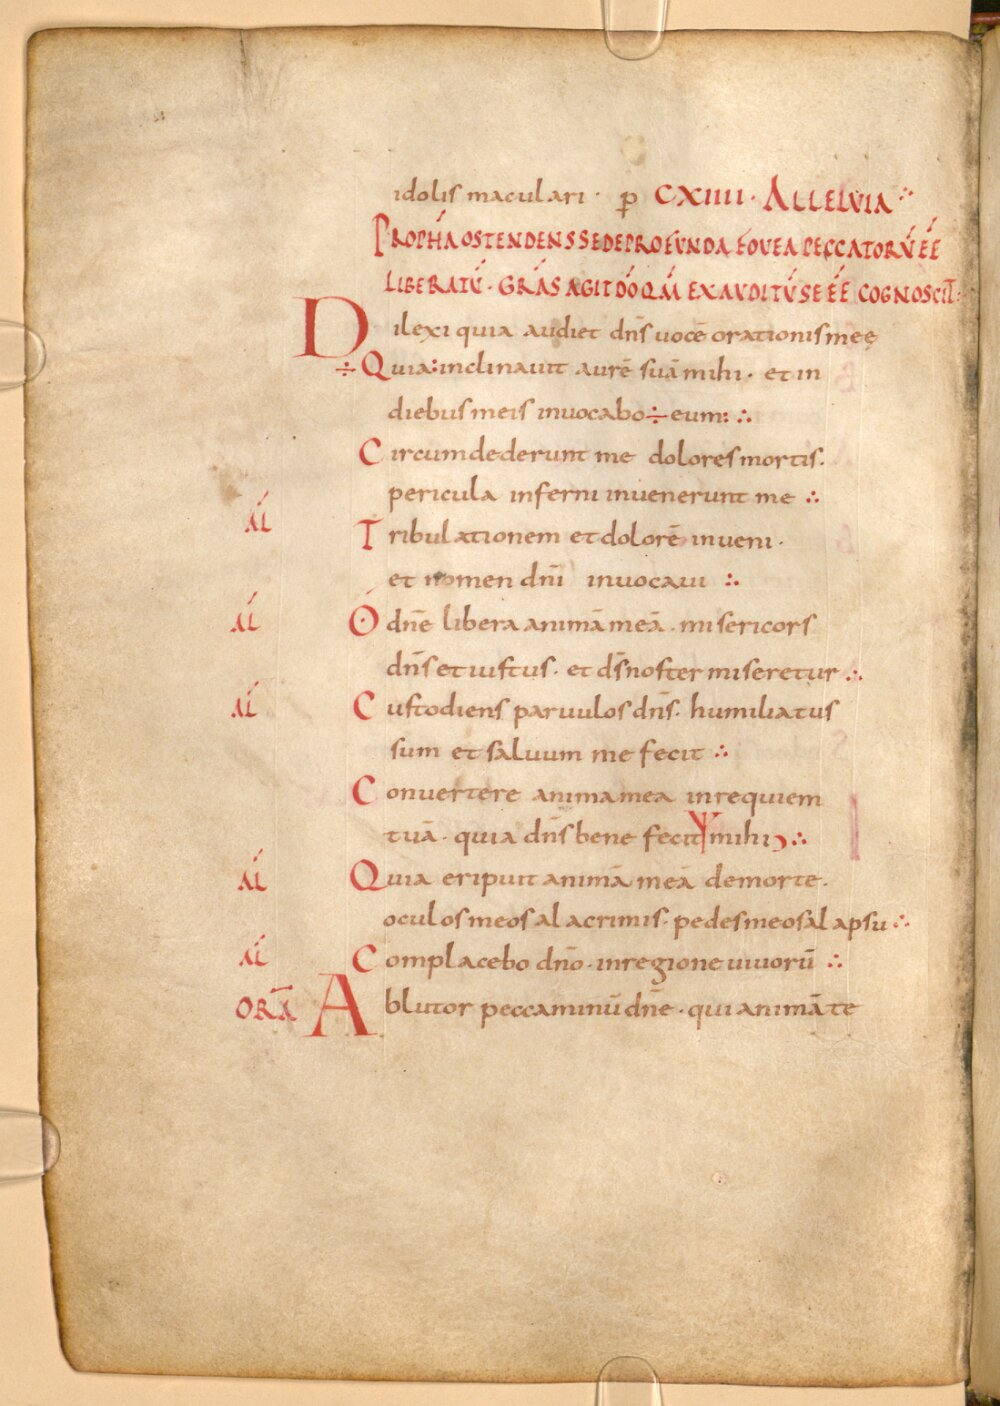 idolis maculari · ꝑ CXIIII · ALLELUIA ∴
PROPHA OSTENDENS SE DE PROFUNDA FOUEA PECCATORŪ EE
LIBERATŪ · GRAS AGIT DO QM EXAUDITŪ SE EE COGNOSCIT :
Dilexi quia audiet dn̄s uocē orationis meę
÷ Quia : inclinauit aurē suā mihi · et in
diebus meis inuocabo ÷ eum : ∴
Circumdederunt me dolores mortis ·
pericula inferni inuenerunt me ∴
AL Tribulationem et dolorē inueni ·
et nomen dn̄i inuocaui ∴
AL O dn̄e libera animā meā · misericors
dn̄s et iustus · et ds̄ noster miseretur ∴
AL Custodiens paruulos dn̄s · humiliatus
sum et saluum me fecit ∴
Conuertere anima mea in requiem
tuā · quia dn̄s bene fecit mihi ∴
AL Quia eripuit animā meā de morte ·
oculos meos a lacrimis · pedes meos a lapsu ∴
AL Complacebo dn̄o · in regione uiuorū ∴
ORA Ablutor peccaminū dn̄e · qui animā te